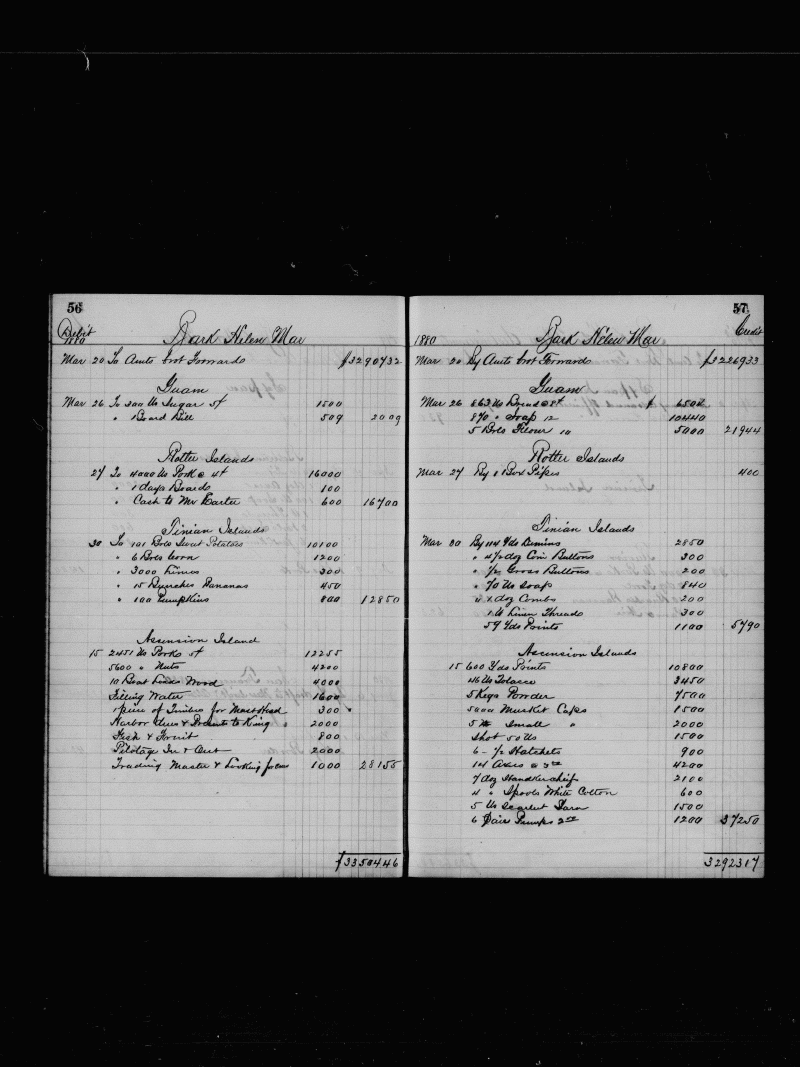 56
Debit
1880
Bark Helen Mar
Mar 20 To Amts brot Forwards $3290732
Guam
Mar 26 To 300 lbs Sugar 5¢ 1500
" 1 Board Bill 509 2009
Rotter Islands
27 To 4000 lbs Pork @ 4¢ 16000
" 1 days Boards 100
" Cash to Mr Carter 600 16700
Tinian Islands
30 To 101 Bbls Sweet Potatoes 10100
" 6 Bbls Corn 1200
" 3000 Limes 300
" 15 Bunches Bananas 450
" 100 Pumpkins 800 12850
Ascension Island
15 2451 lbs Pork 5¢ 12255
5600 " Nuts 4200
10 Boat Loads Wood 4000
Filling Water 1600
1 piece of Timber for Mast Head 300
Harbor Dues & Presents to King 2000
Fish & Fruit 800
Pilotage In & Out 2000
Trading Master & Looking for 1000 28155
$3350446
57
Credit
1880
Bark Helen Mar
Mar 20 By Amts brot Forwards $3226933
Guam
Mar 26 863 lbs Bread @ 8¢ $ 6504
870 " Soap 12 10440
5 Bbls Flour 10 5000 21944
Rotter Islands
Mar 27 By 1 Box Pipes 400
Tinian Islands
Mar 30 By 114 Yds Denims 2850
" 4 1/2 doz Buttons 300
" 1/2 Gross Buttons 200
" 70 lbs Soap 840
" doz Combs 200
1 lb Linen Threads 300
59 Yds Prints 1100 5790
Ascension Islands
15 600 Yds Prints 10800
46 lbs Tobacco 3450
5 Kegs Powder 7500
5000 Musket Caps 1500
5 M Small " 2000
Shot 50 lbs 1500
6 - 1/2 Hatchets 900
14 Axes @ 3 00 4200
7 doz Handkerchief 2100
4 " Spools White Cotton 600
5 lbs Scarlet Yarn 1500
6 Pair Pumps 2 00 1200 37250
3292317